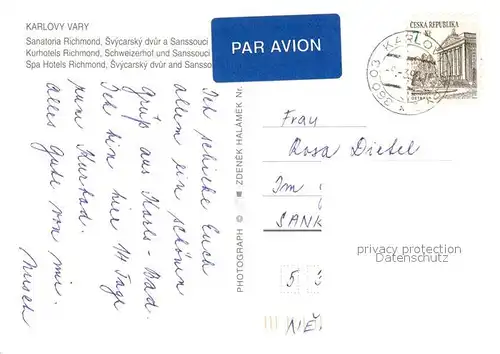 KARLOVY VARY
Sanatoria Richmond, Švýcarský dvůr a Sanssouci
Kurhotels Richmond, Schweizerhof und Sanssouci
Spa Hotels Richmond, Švýcarský dvůr and Sansso
PAR AVION
Ich schicke Euch
allem ein schönen
Gruß aus Karls-Bad.
Ich bin hier 14 Tage
zum Kurbad.
Alles Gute von mir.
PHOTOGRAPH © ZDENĚK HALÁMEK Nr.
ČESKÁ REPUBLIKA
7 Kč
360 03 KARLO
Frau
Rosa Dietel
Im
SANK
5 3
NĚ
privacy protection
Datenschutz